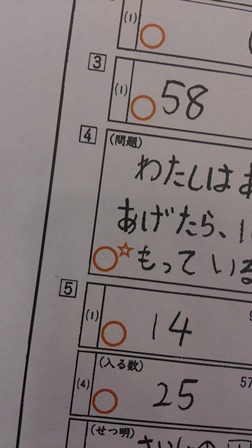 (1)
3
(1)
58
4
(問題)
わたしは
あげたら、
☆もっている
5
(1)
14
(入る数)
(4)
25
57
(せつ明)